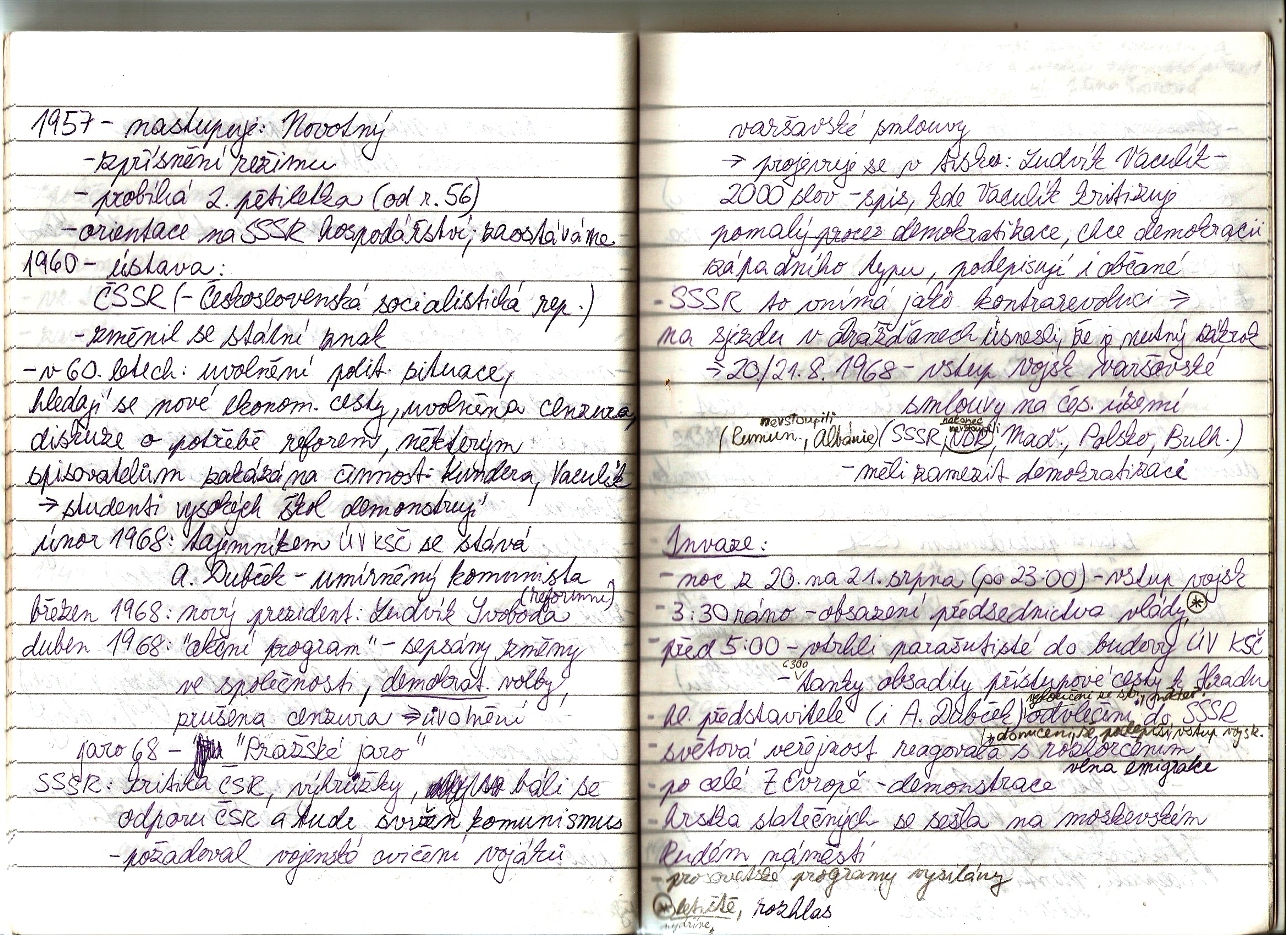 1957 - nastupuje: Novotný
- zpřísnění režimu
- probíhá 2. pětiletka (od r. 56)
- orientace na SSSR hospodářství, zaostáváme
1960 - ústava:
ČSSR (- Československá socialistická rep.)
- změnil se státní znak
- v 60. letech: uvolnění polit. situace,
hledají se nové ekonom. cesty, uvolněna cenzura,
diskuze o potřebě reforem, některým
spisovatelům zakázána činnost: Kundera, Vaculík
→ studenti vysokých škol demonstrují
únor 1968: tajemníkem ÚV KSČ se stává
A. Dubček - umírněný komunista
(reformní)
březen 1968: nový prezident: Ludvík Svoboda
duben 1968: "akční program" - sepsány změny
ve společnosti, demokrat. volby,
zrušena cenzura ⇒ uvolnění
jaro 68 - "Pražské jaro"
SSSR: kritika ČSR, výhrůžky, báli se
odporu ČSR a bude svržen komunismus
- požadoval vojenské cvičení vojáků
varšavské smlouvy
→ projevuje se v tisku: Ludvík Vaculík -
2000 slov - spis, kde Vaculík kritizuje
pomalý proces demokratizace, chce demokracii
západního typu, podepisují i občané
- SSSR to vnímá jako kontrarevoluci ⇒
na sjezdu v drážďanech usnesli, že je nutný zákrok
→ 20/21.8. 1968 - vstup vojsk varšavské
smlouvy na čes. území
nevstoupili nakonec nevstoupili
(Rumun., Albánie) (SSSR, NDR, Maď., Polsko, Bulh.)
- měli zamezit demokratizaci
Invaze:
- noc z 20. na 21. srpna (po 23:00) - vstup vojsk
- 3:30 ráno - obsazení předsednictva vlády ⊛
- před 5:00 - vtrhli parašutisté do budovy ÚV KSČ
6300
- tanky obsadily přístupové cesty k Hradu
- představitelé (i A. Dubček) odvlečeni do SSSR
→ donuceni, se podepsat vstup vojsk.
- světová veřejnost reagovala s rozhořčením
vlna emigrace
- po celé Z Evropě - demonstrace
- hrstka statečných se sešla na moskevském
Rudém náměstí
- prosovětské programy vysílány
⊛ letiště, rozhlas